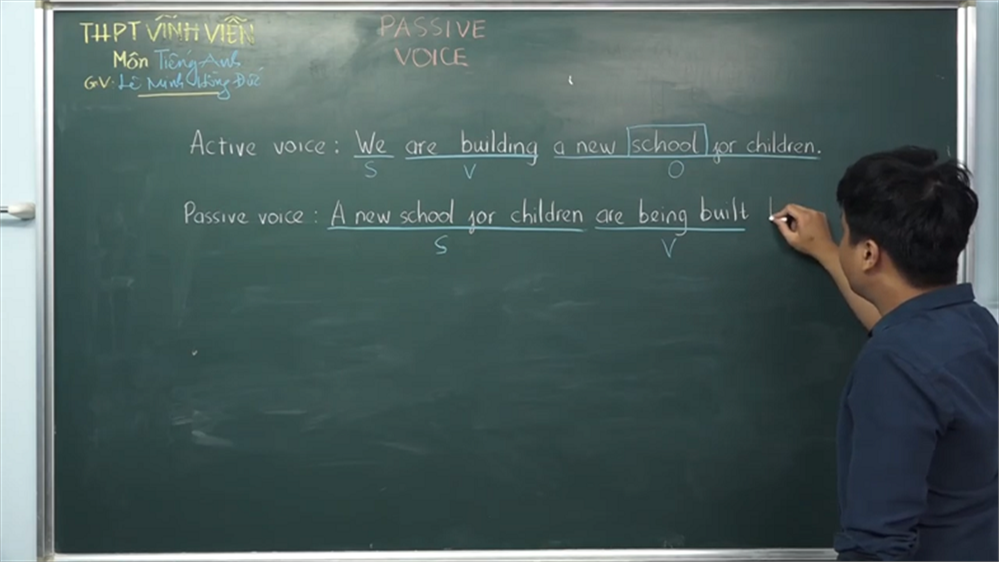 THPT VĨNH VIỄN
Môn Tiếng Anh
GV: Lê Minh Hồng Đức
PASSIVE
VOICE
Active voice: We are building a new school for children.
S V O
Passive voice: A new school for children are being built b
S V